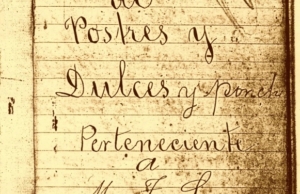 de
Postres y
Dulces y ponch
Perteneciente
a
M. F. L.